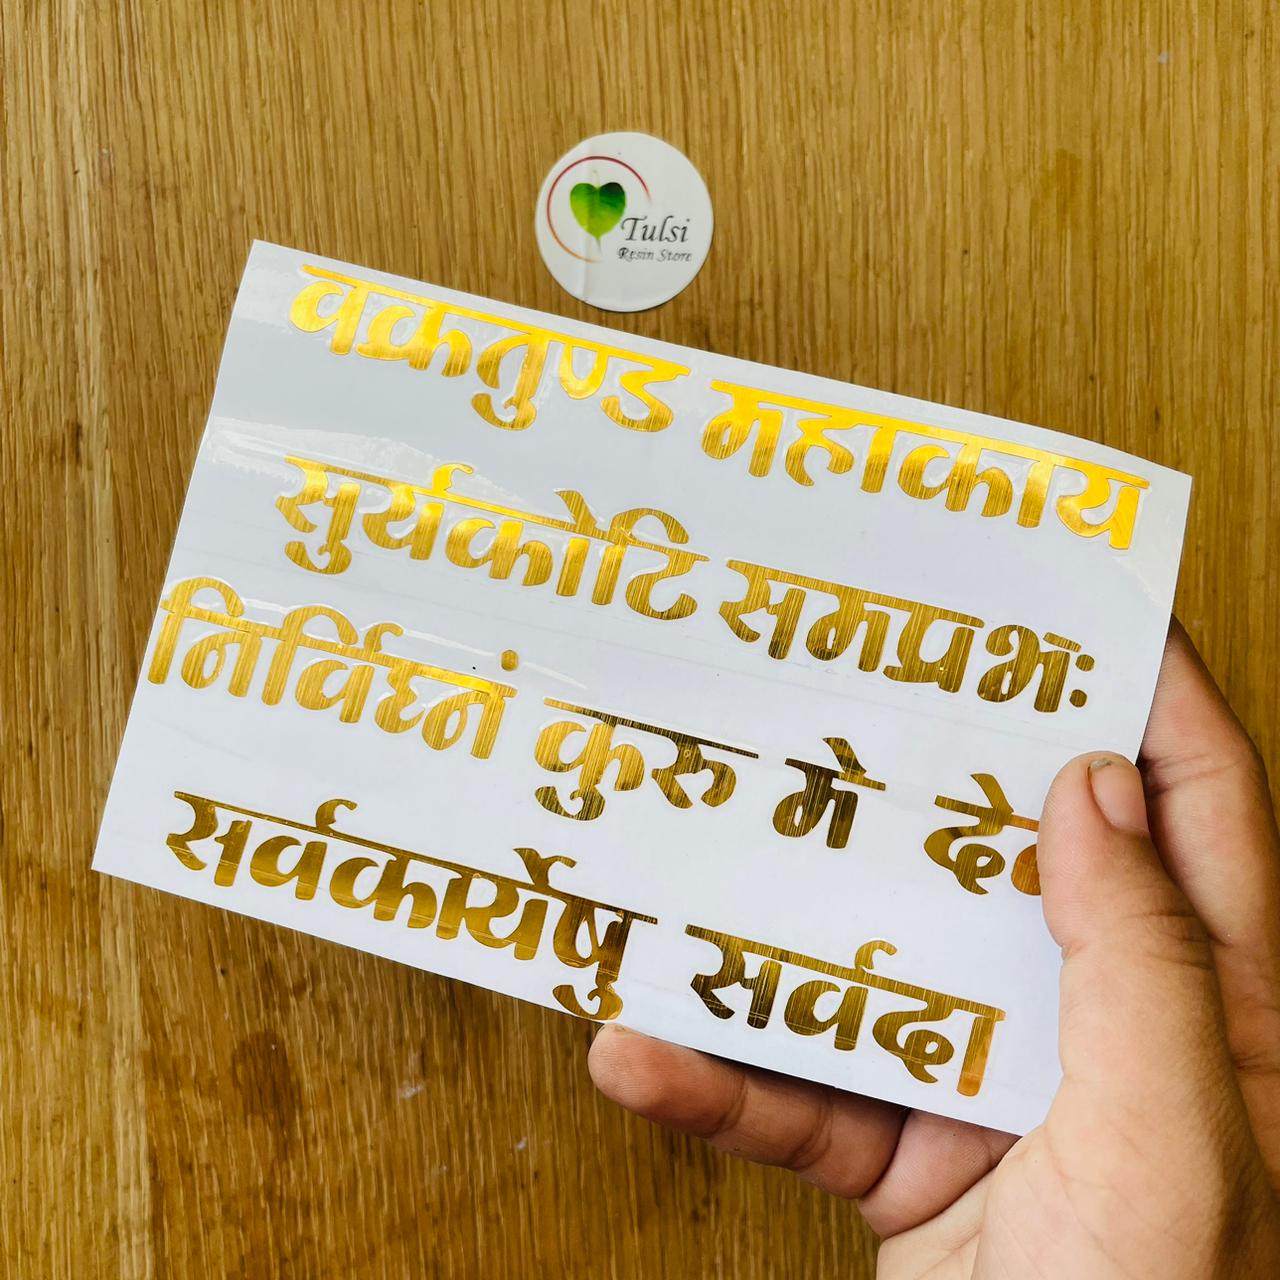 Tulsi
Resin Store
वक्रतुण्ड महाकाय
सुर्यकोटि समप्रभः
निर्विघ्नं कुरु मे
सर्वकार्येषु सर्वदा